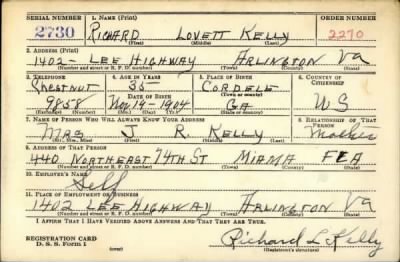 SERIAL NUMBER 1. NAME (Print) ORDER NUMBER
2730 RICHARD LOVETT KELLY 2270
(First) (Middle) (Last)
2. ADDRESS (Print)
1402- LEE HIGHWAY ARLINGTON VA
(Number and street or R. F. D. number) (Town) (County) (State)
3. TELEPHONE 4. AGE IN YEARS 5. PLACE OF BIRTH 6. COUNTRY OF CITIZENSHIP
Chestnut 35 CORDELE
DATE OF BIRTH (Town or county)
9858 Nov 14-1904 GA US
(Exchange) (Number) (Mo.) (Day) (Yr.) (State or country)
7. NAME OF PERSON WHO WILL ALWAYS KNOW YOUR ADDRESS 8. RELATIONSHIP OF THAT PERSON
Mrs J R. KELLY Mother
(Mr., Mrs., Miss) (First) (Middle) (Last)
9. ADDRESS OF THAT PERSON
440 NORTHEAST 74TH ST MIAMA FLA
(Number and street or R. F. D. number) (Town) (County) (State)
10. EMPLOYER'S NAME
Self
11. PLACE OF EMPLOYMENT OR BUSINESS
1402 LEE HIGHWAY ARLINGTON VA
(Number and street or R. F. D. number) (Town) (County) (State)
I AFFIRM THAT I HAVE VERIFIED ABOVE ANSWERS AND THAT THEY ARE TRUE.
REGISTRATION CARD
D. S. S. Form 1 Richard L Kelly
(Registrant's signature)